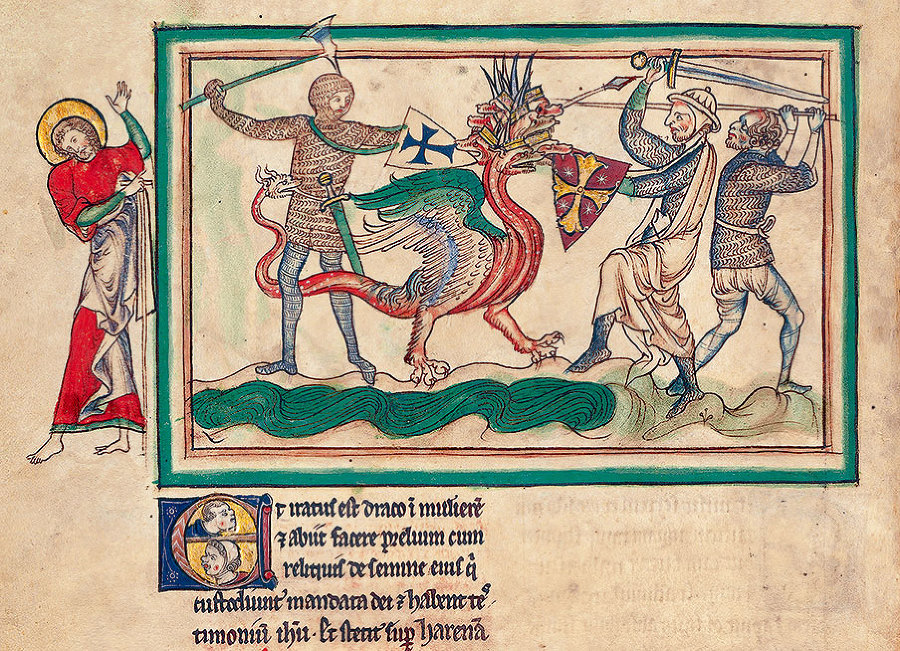 Et iratus est draco ī mulierē
⁊ abiit facere prelium cum
reliquis de semine eius qͥ
custodiunt mandata dei ⁊ habent teˢ
timoniū ihu. Et stetit suꝑ harenā